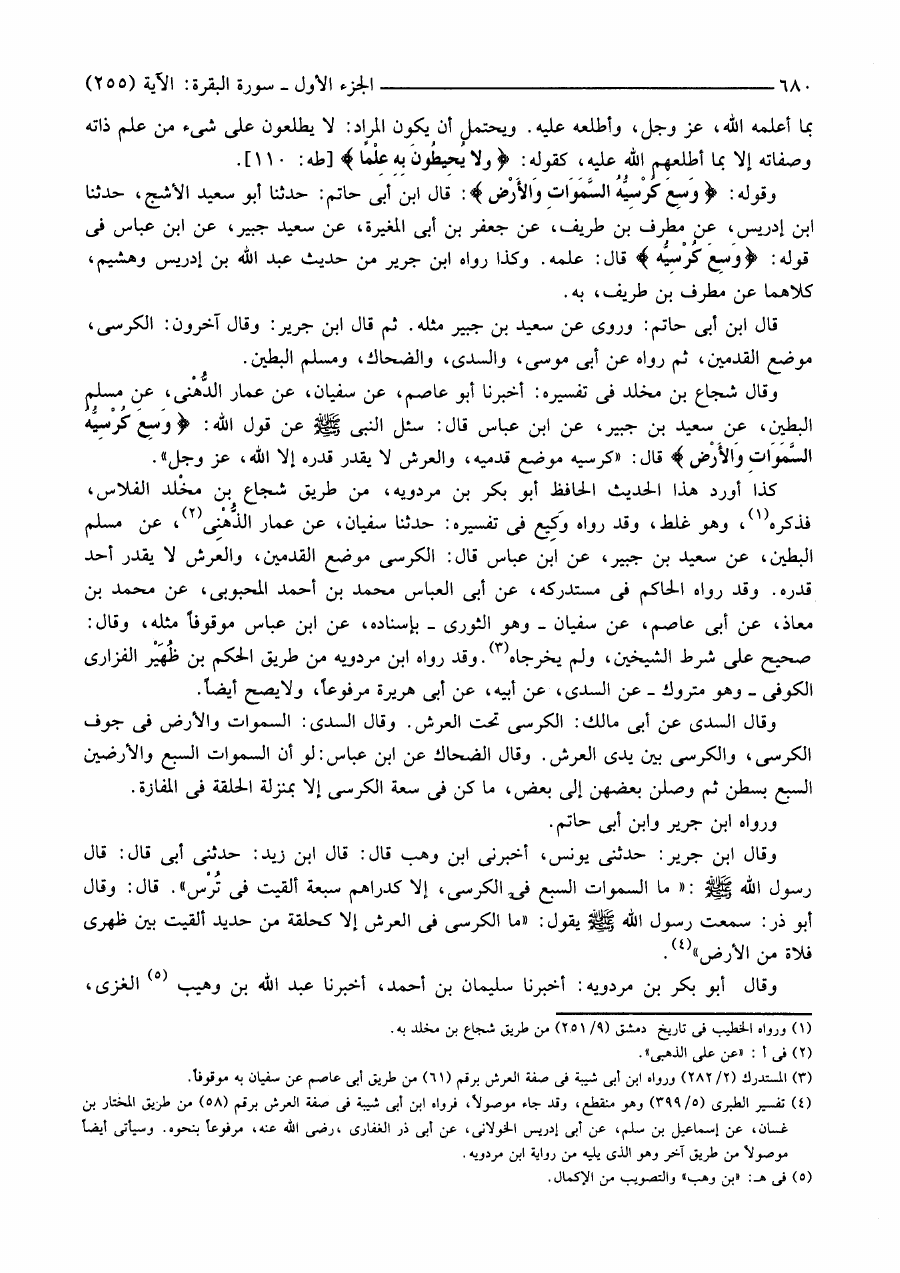 ٦٨٠ ــــــــ الجزء الأول ـ سورة البقرة: الآية (٢٥٥)
بما أعلمه الله، عز وجل، وأطلعه عليه. ويحتمل أن يكون المراد: لا يطلعون على شىء من علم ذاته
وصفاته إلا بما أطلعهم الله عليه، كقوله: ﴿ ولا يُحِيطُونَ بِهِ عِلْمًا ﴾ [طه: ١١٠].
وقوله: ﴿ وَسِعَ كُرْسِيُّهُ السَّمَوَاتِ وَالأَرْضَ ﴾: قال ابن أبى حاتم: حدثنا أبو سعيد الأشج، حدثنا
ابن إدريس، عن مطرف بن طريف، عن جعفر بن أبى المغيرة، عن سعيد جبير، عن ابن عباس فى
قوله: ﴿وَسِعَ كُرْسِيُّه ﴾ قال: علمه. وكذا رواه ابن جرير من حديث عبد الله بن إدريس وهشيم،
كلاهما عن مطرف بن طريف، به.
قال ابن أبى حاتم: وروى عن سعيد بن جبير مثله. ثم قال ابن جرير: وقال آخرون: الكرسى،
موضع القدمين، ثم رواه عن أبى موسى، والسدى، والضحاك، ومسلم البطين.
وقال شجاع بن مخلد فى تفسيره: أخبرنا أبو عاصم، عن سفيان، عن عمار الدُّهْنى، عن مسلم
البطين، عن سعيد بن جبير، عن ابن عباس قال: سئل النبى ﷺ عن قول الله: ﴿ وَسِعَ كُرْسِيُّهُ
السَّمَوَاتِ وَالأَرْضَ ﴾ قال: «كرسيه موضع قدميه، والعرش لا يقدر قدره إلا الله، عز وجل».
كذا أورد هذا الحديث الحافظ أبو بكر بن مردويه، من طريق شجاع بن مخْلد الفلاس،
فذكره(١)، وهو غلط، وقد رواه وَكِيع فى تفسيره: حدثنا سفيان، عن عمار الذُّهْنِى(٢)، عن مسلم
البطين، عن سعيد بن جبير، عن ابن عباس قال: الكرسى موضع القدمين، والعرش لا يقدر أحد
قدره. وقد رواه الحاكم فى مستدركه، عن أبى العباس محمد بن أحمد المحبوبى، عن محمد بن
معاذ، عن أبى عاصم، عن سفيان ـ وهو الثورى ـ بإسناده، عن ابن عباس موقوفاً مثله، وقال:
صحيح على شرط الشيخين، ولم يخرجاه(٣).وقد رواه ابن مردويه من طريق الحكم بن ظُهَيْر الفزارى
الكوفى ـ وهو متروك ـ عن السدى، عن أبيه، عن أبى هريرة مرفوعاً، ولايصح أيضاً.
وقال السدى عن أبى مالك: الكرسى تحت العرش. وقال السدى: السموات والأرض فى جوف
الكرسى، والكرسى بين يدى العرش. وقال الضحاك عن ابن عباس:لو أن السموات السبع والأرضين
السبع بسطن ثم وصلن بعضهن إلى بعض، ما كن فى سعة الكرسى إلا بمنزلة الحلقة فى المفازة.
ورواه ابن جرير وابن أبى حاتم.
وقال ابن جرير: حدثنى يونس، أخبرنى ابن وهب قال: قال ابن زيد: حدثنى أبى قال: قال
رسول الله ﷺ :« ما السموات السبع فى الكرسى، إلا كدراهم سبعة ألقيت فى تُرْس». قال: وقال
أبو ذر: سمعت رسول الله ﷺ يقول: «ما الكرسى فى العرش إلا كحلقة من حديد ألقيت بين ظهرى
فلاة من الأرض»(٤).
وقال أبو بكر بن مردويه: أخبرنا سليمان بن أحمد، أخبرنا عبد الله بن وهيب (٥) الغزى،
(١) ورواه الخطيب فى تاريخ دمشق (٢٥١/٩) من طريق شجاع بن مخلد به.
(٢) فى أ : «عن على الذهبى».
(٣) المستدرك (٢٨٢/٢) ورواه ابن أبى شيبة فى صفة العرش برقم (٦١) من طريق أبى عاصم عن سفيان به موقوفاً.
(٤) تفسير الطبرى (٣٩٩/٥) وهو منقطع، وقد جاء موصولاً، فرواه ابن أبى شيبة فى صفة العرش برقم (٥٨) من طريق المختار بن
غسان، عن إسماعيل بن سلم، عن أبى إدريس الخولانى، عن أبى ذر الغفارى ،رضى الله عنه، مرفوعاً بنحوه. وسيأتى أيضاً
موصولاً من طريق آخر وهو الذى يليه من رواية ابن مردويه.
(٥) فى هـ: «بن وهب» والتصويب من الإكمال.